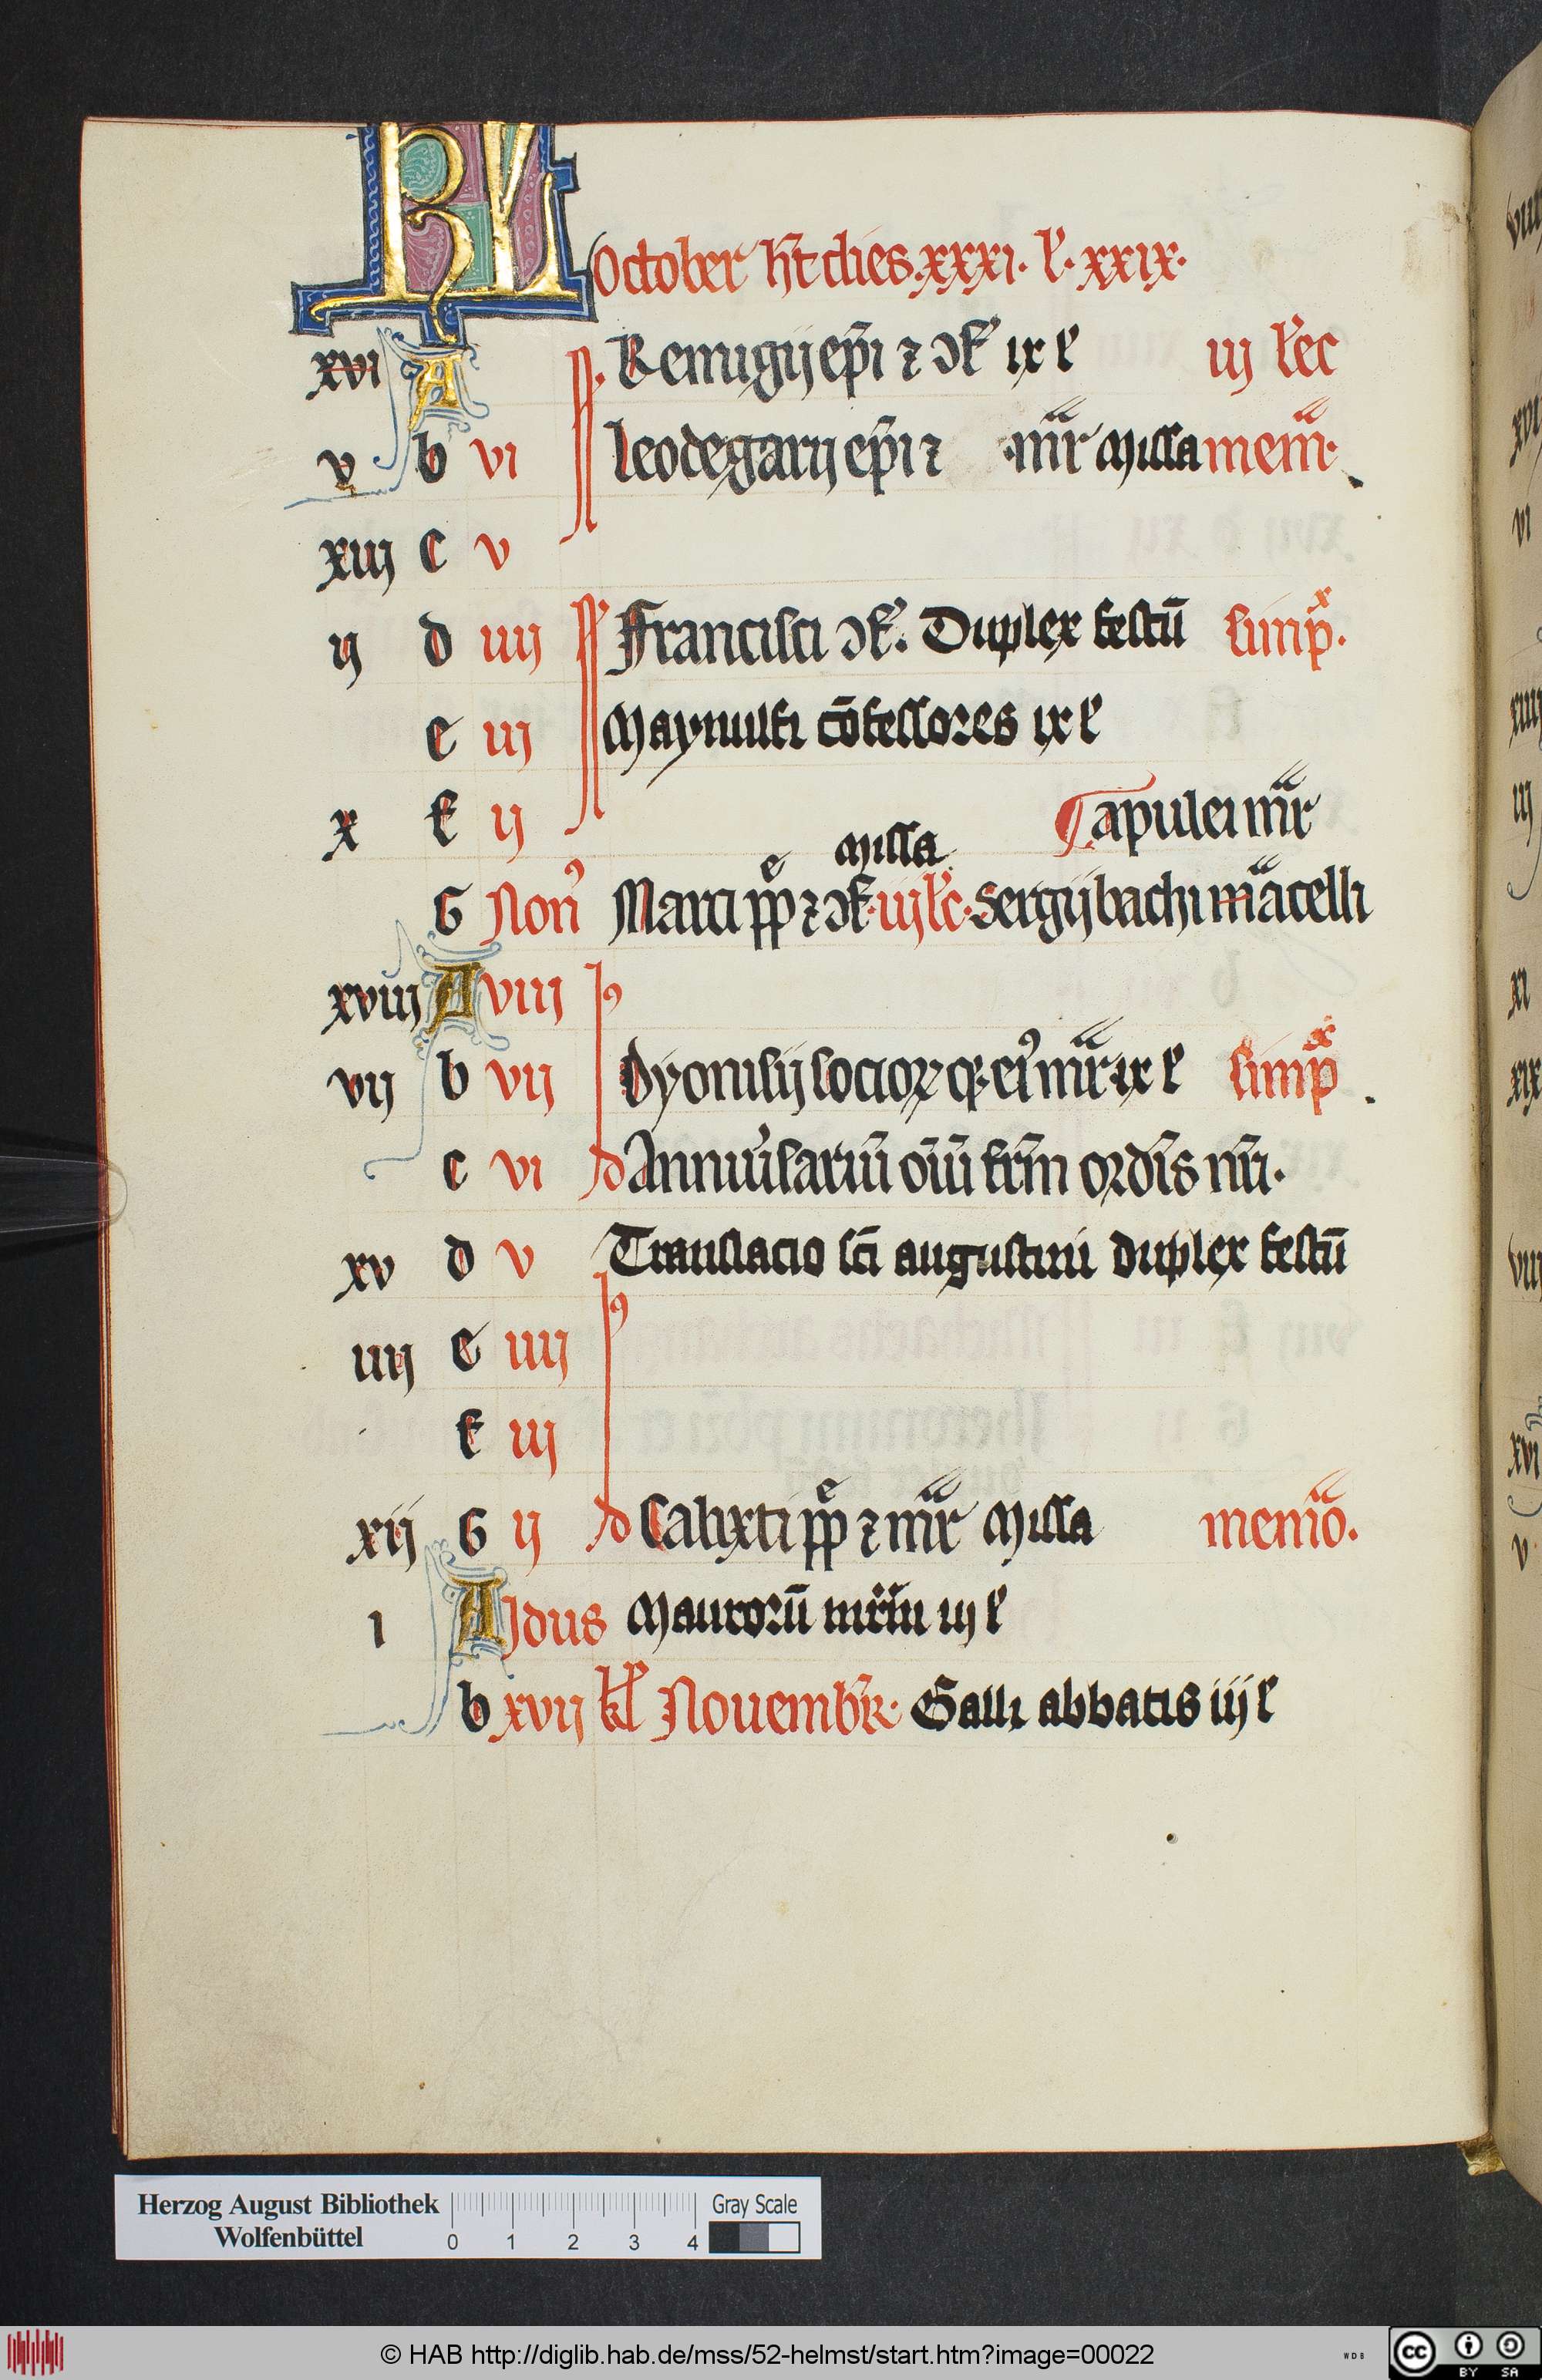 KL
October ħt dies. xxxi. l'. xxix.
xvi A Remigij ep̄i ⁊ ↄf' ix l' iij l'ec
v b vi leodegarij ep̄i ⁊ mr̄ Missa mem̄r.
xiij c v
ij d iiij Francisci ↄf'. Duplex festū simpx̄.
e iij Maynulfi cōfessores ix l'
x f ij apulei mr̄
Missa
G Non' Marci pp̄e ⁊ ↄf. iij l'c. Sergij bachi m̄acelli
xviij A viij Id'
vij b vij Dyonisij socioꝝ ꝙ ei' mr̄ ix l' simpx̄.
c vi Anniu'sariū oīū frm̄ ordīs nr̄i.
xv d v Translacio sc̄i augustini duplex festū
iiij e iiij Id'
f iij
xij G ij Calixti pp̄e ⁊ mr̄ Missa mem̄o.
i A Idus Maurorū mr̄m iij l'
b xvij kl' Nouembr̄. Galli abbatis iij l'
Herzog August Bibliothek
Wolfenbüttel
0 1 2 3 4
Gray Scale
© HAB http://diglib.hab.de/mss/52-helmst/start.htm?image=00022
WDB
CC BY SA